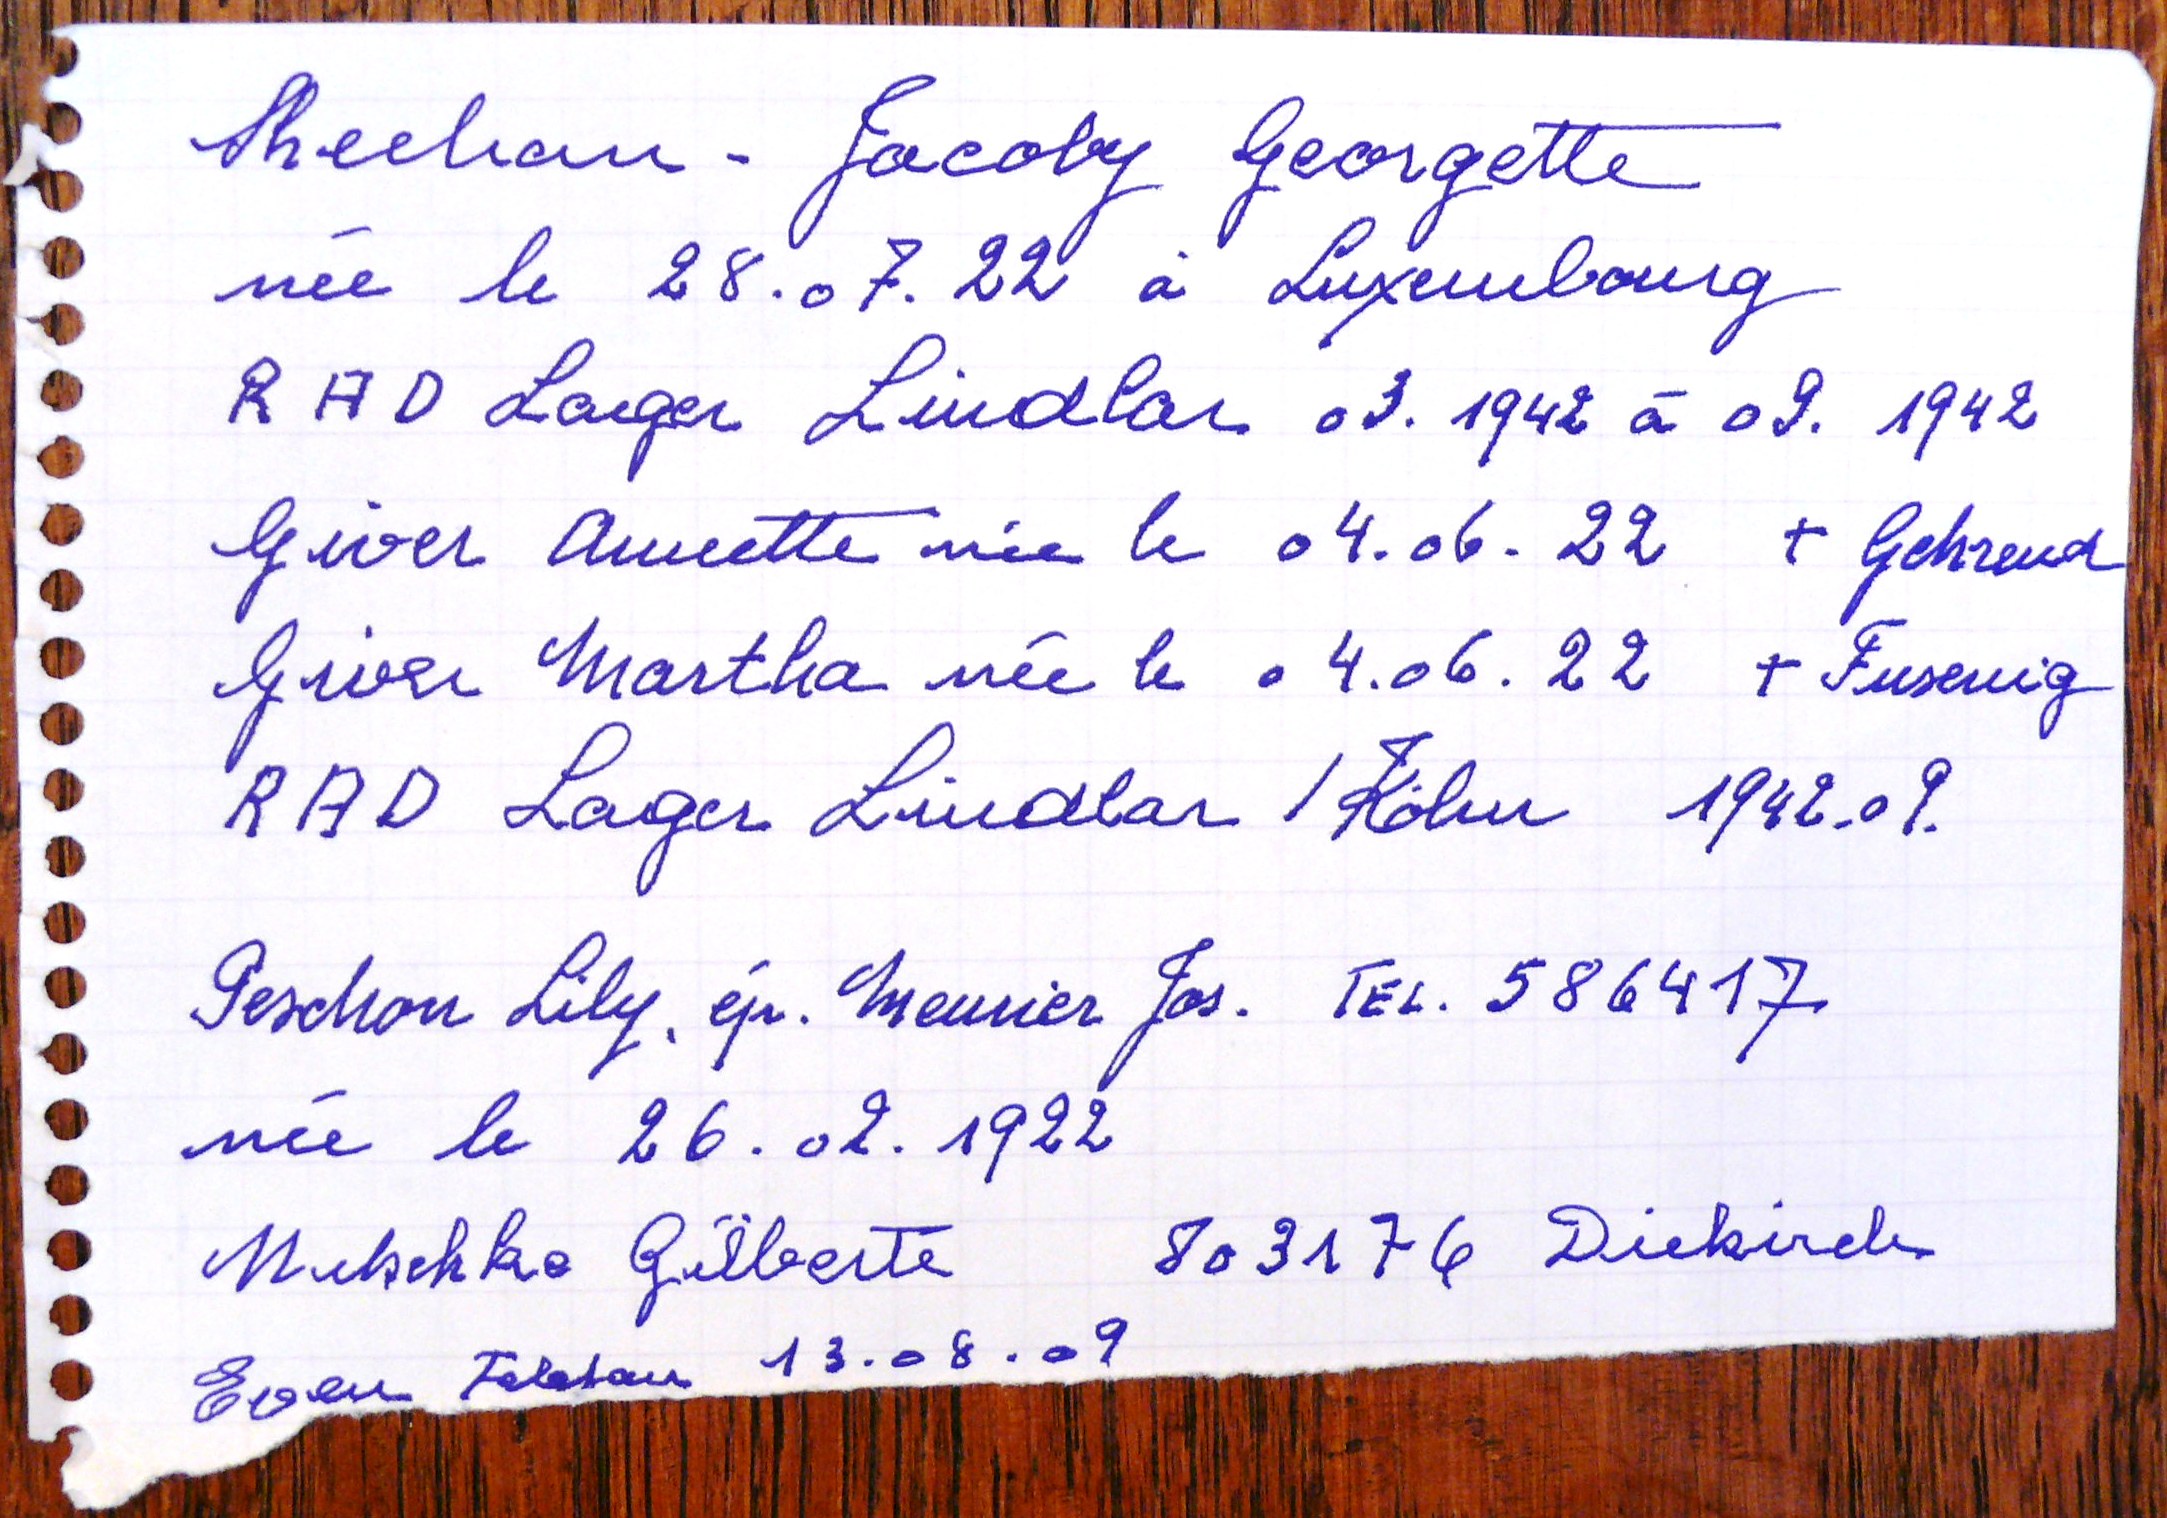 Sheehan - Jacoby Georgette
née le 28.07.22 à Luxembourg
RAD Lager Lindlar 03.1942 à 09.1942
Giver Annette née le 04.06.22 + Gehrend
Giver Martha née le 04.06.22 + Fusenig
RAD Lager Lindlar / Köln 1942.09.
Peschon Lily, ép. Meunier Jos. TEL. 586417
née le 26.02.1922
Gilberte 803176 Diekirch
Even 13.08.09